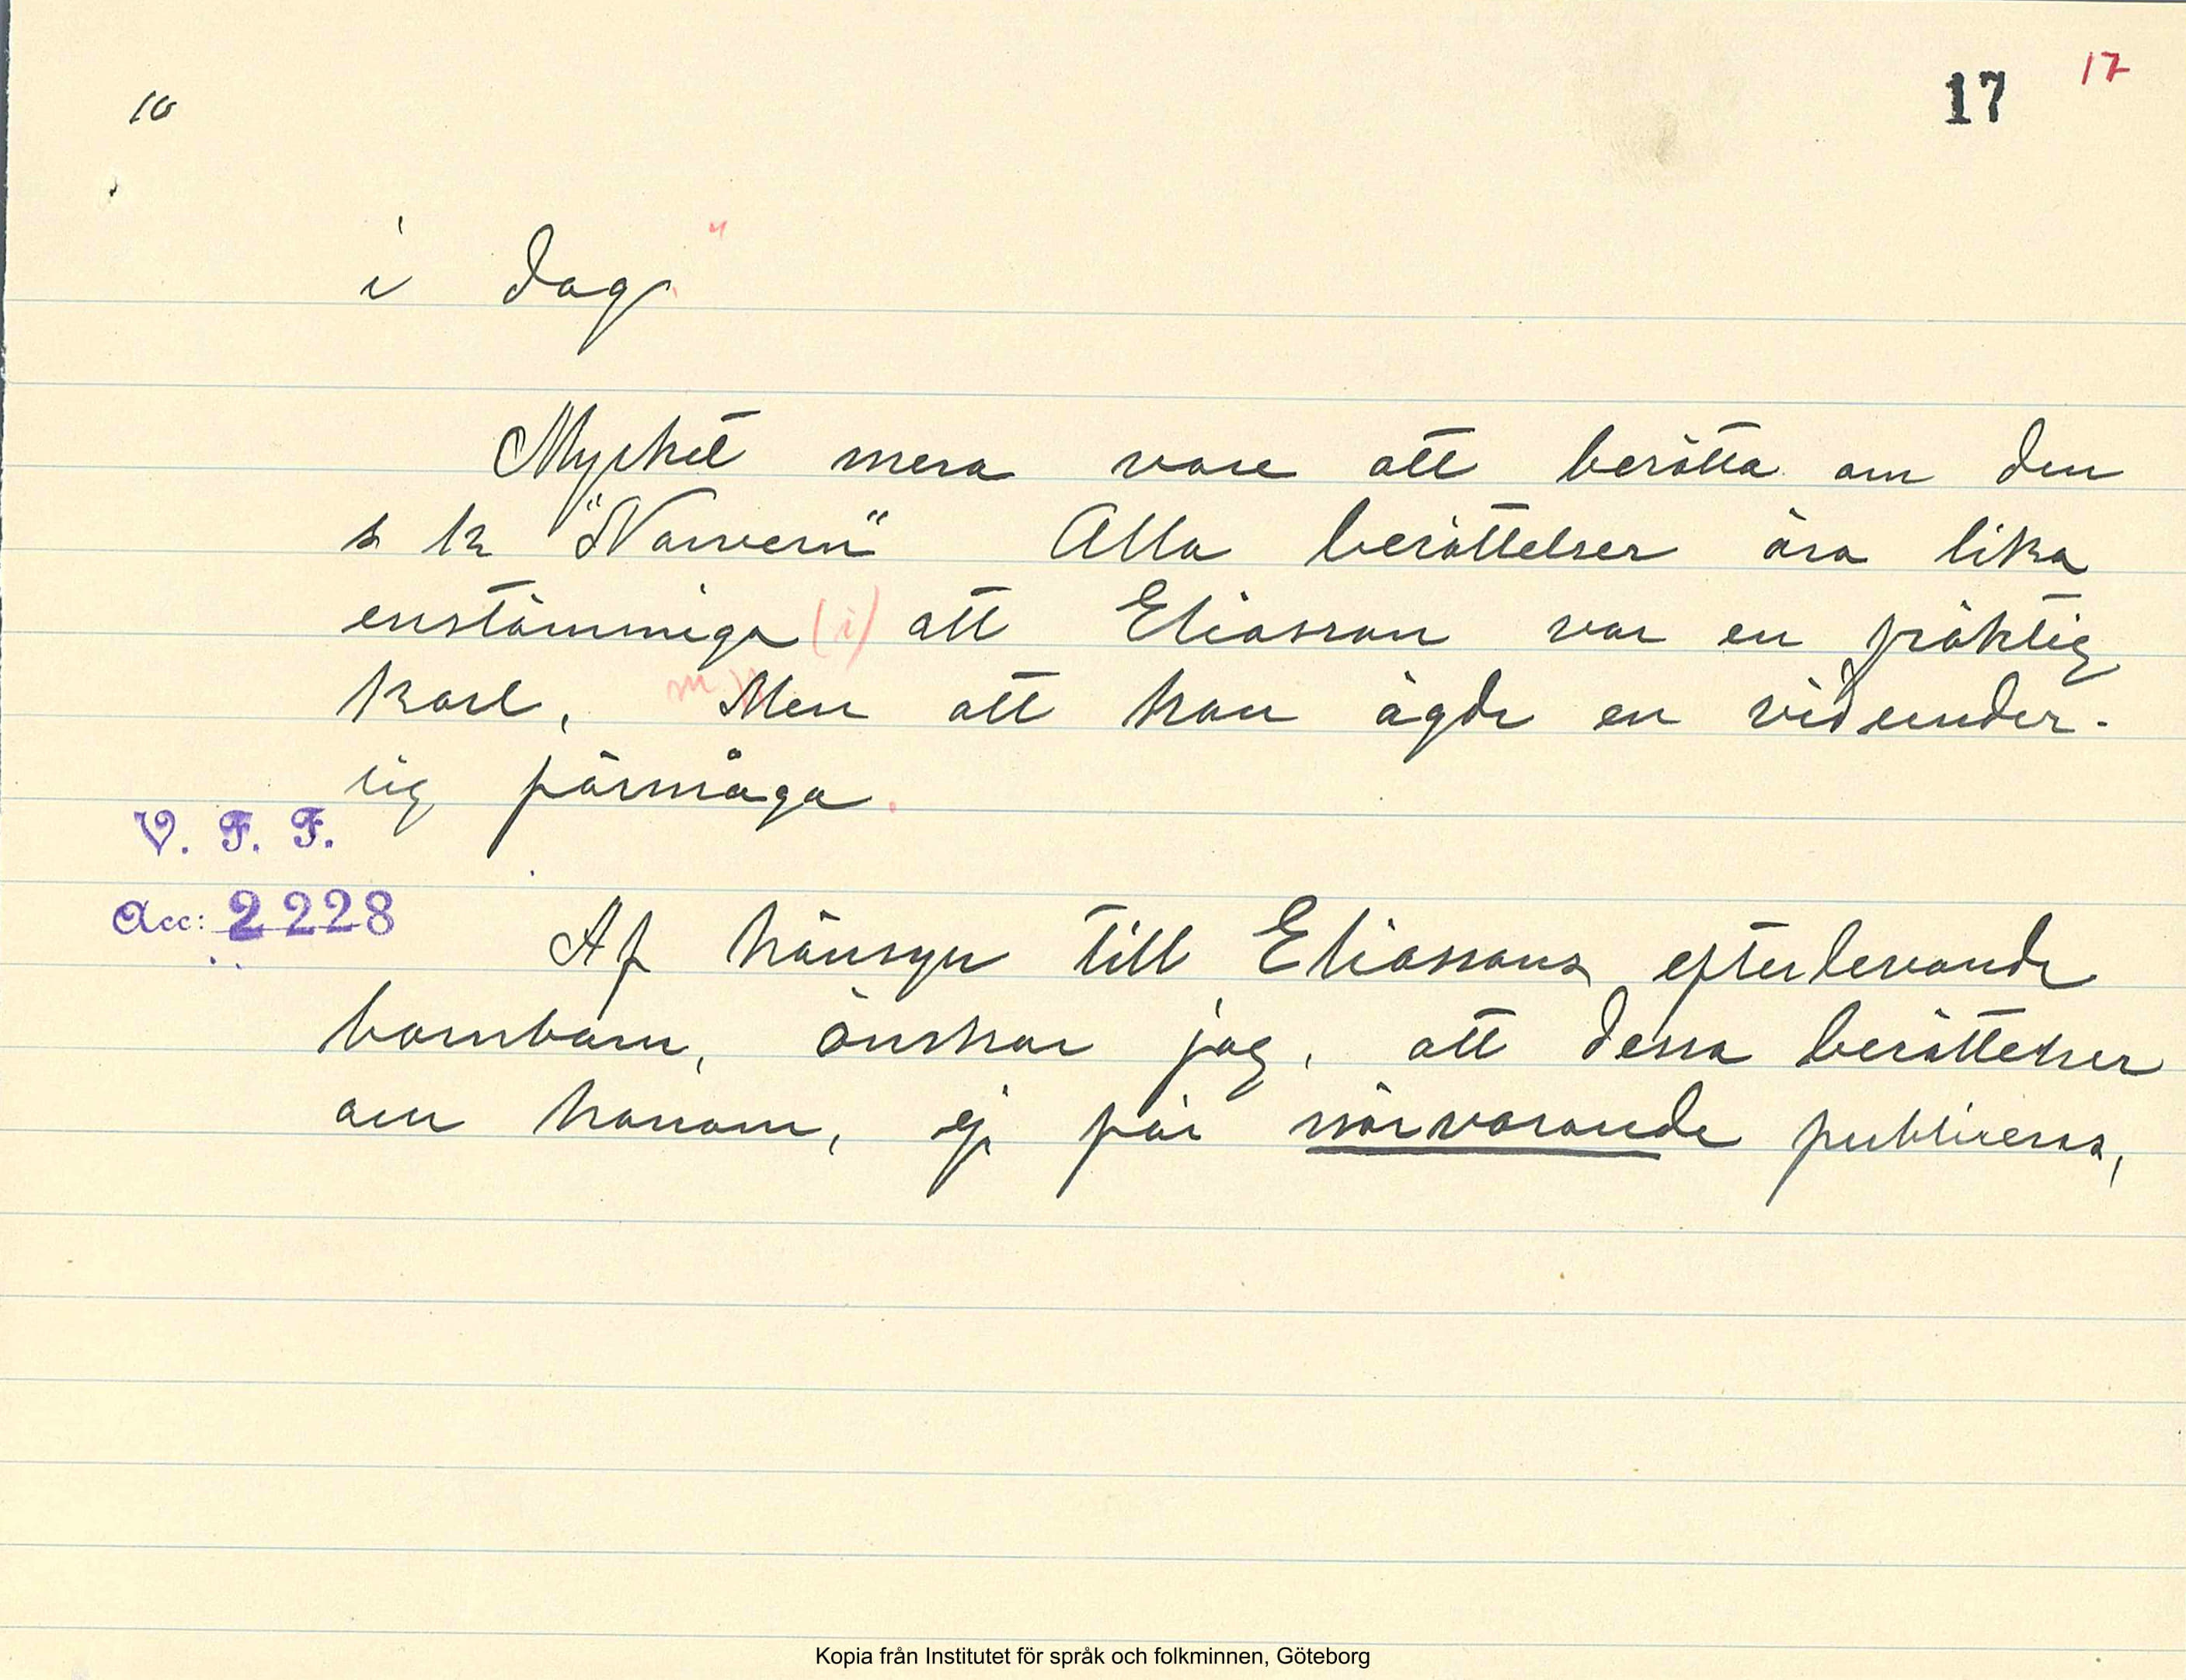 10
17 17
i dag."
Mycket mera vore att berätta om den
s k "Narvern" Alla berättelser äro lika
enstämmiga (i) att Eliasson var en präktig
karl, m Men att han ägde en vidunder-
lig förmåga.
V. F. F.
Acc: 2228
Af hänsyn till Eliassons efterlevande
barnbarn, önskar jag, att dessa berättelser
om honom, ej för närvarande publiceras,
Kopia från Institutet för språk och folkminnen, Göteborg